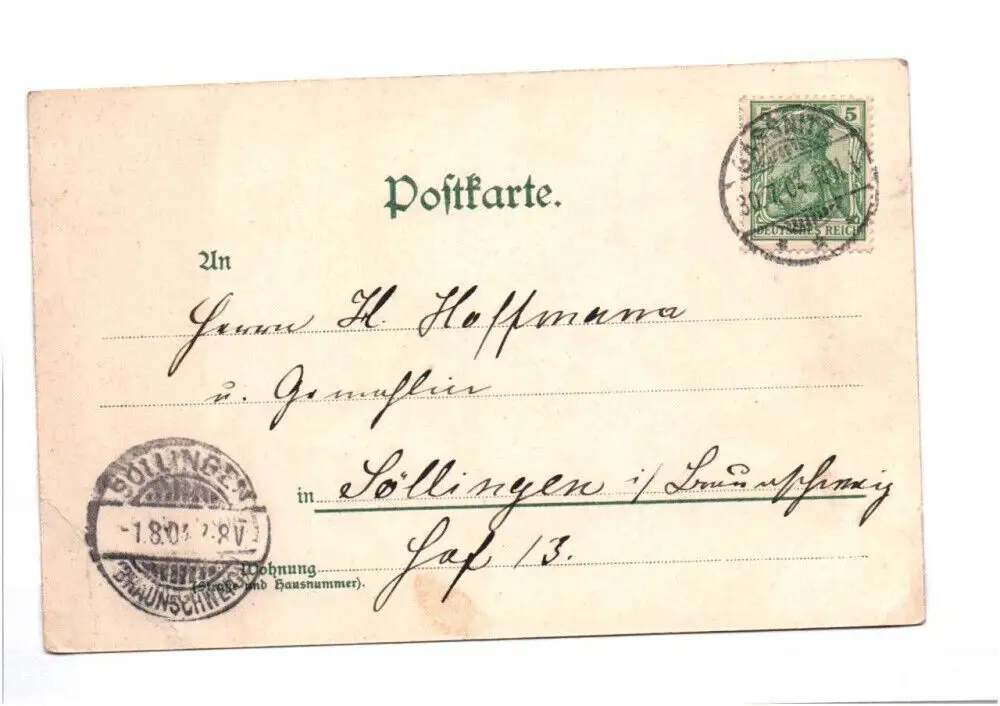 5 5
DEUTSCHES REICH
SASSNITZ
30.7.04
Postkarte.
An
Herrn H. Hoffmann
u. Gemahlin
in Söllingen i/ Braunschweig
Hof 13.
Wohnung
(Straße und Hausnummer).
SÖLLINGEN
-1.8.04 7-8V
BRAUNSCHWEIG